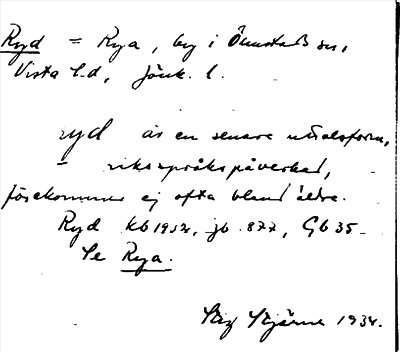 Ryd = Rya, by i Ölmstads sn,
Vista h.d, Jönk. l.
ryd är en senare uttalsform,
= riksspråkspåverkad,
förekommer ej ofta bland äldre.
Ryd kb 1932, jb. 877, Gb 35-
Se Rya.
Stig Stjärne 1934.